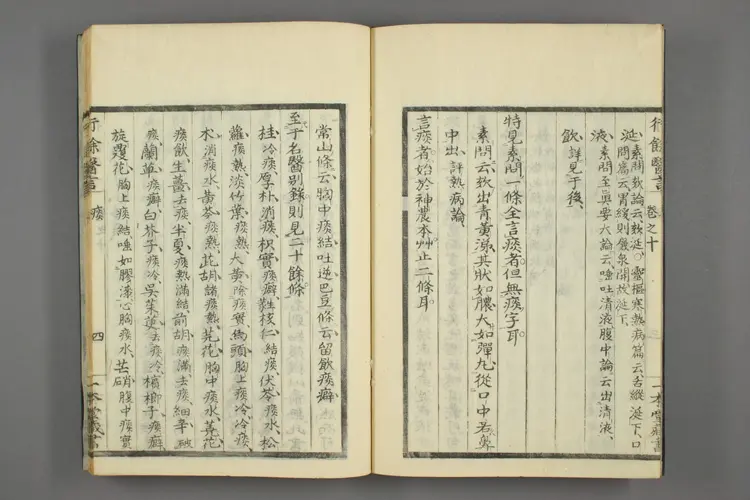 行餘醫言 卷之十
涎、素問欬論云、欬涎○靈樞寒熱病篇云、舌縱涎下、口
問篇云、胃緩則廉泉開、故涎下、
液、素問至真要大論云、唾吐清液、腹中論云、出清液、
飲、詳見于後、
特見素問一條、全言痰者、但無痰字耳、
素問云、欬出青黃涕、其狀如膿、大如彈丸、從口中若鼻
中出、評熱病論、
言痰者、始於神農本艸、止二條耳、
常山條云、胸中痰結吐逆、巴豆條云、留飲痰癖、
至于名醫別錄、則見二十餘條、
桂、冷痰、厚朴、消痰、枳實、痰癖、蕤核仁、結痰、伏苓、痰水、松
蘿、痰熱、淡竹葉、痰熱、大黃、除痰實、烏頭、胸上痰冷、冷痰、
木、消痰水、黃芩、痰熱、茈胡、諸痰熱、芫花、胸中痰水、蕘花、
痰飲、生薑、去痰、半夏、痰熱滿結、前胡、痰滿、去痰、細辛、破
痰、蘭草、痰癖、白芥子、痰冷、吳茱萸、去痰冷、檳榔子、痰癖、
旋覆花、胸上痰結、唾如膠漆、心胸痰水、芒硝、腹中痰實
行餘醫言 痰 四 一本堂藏書